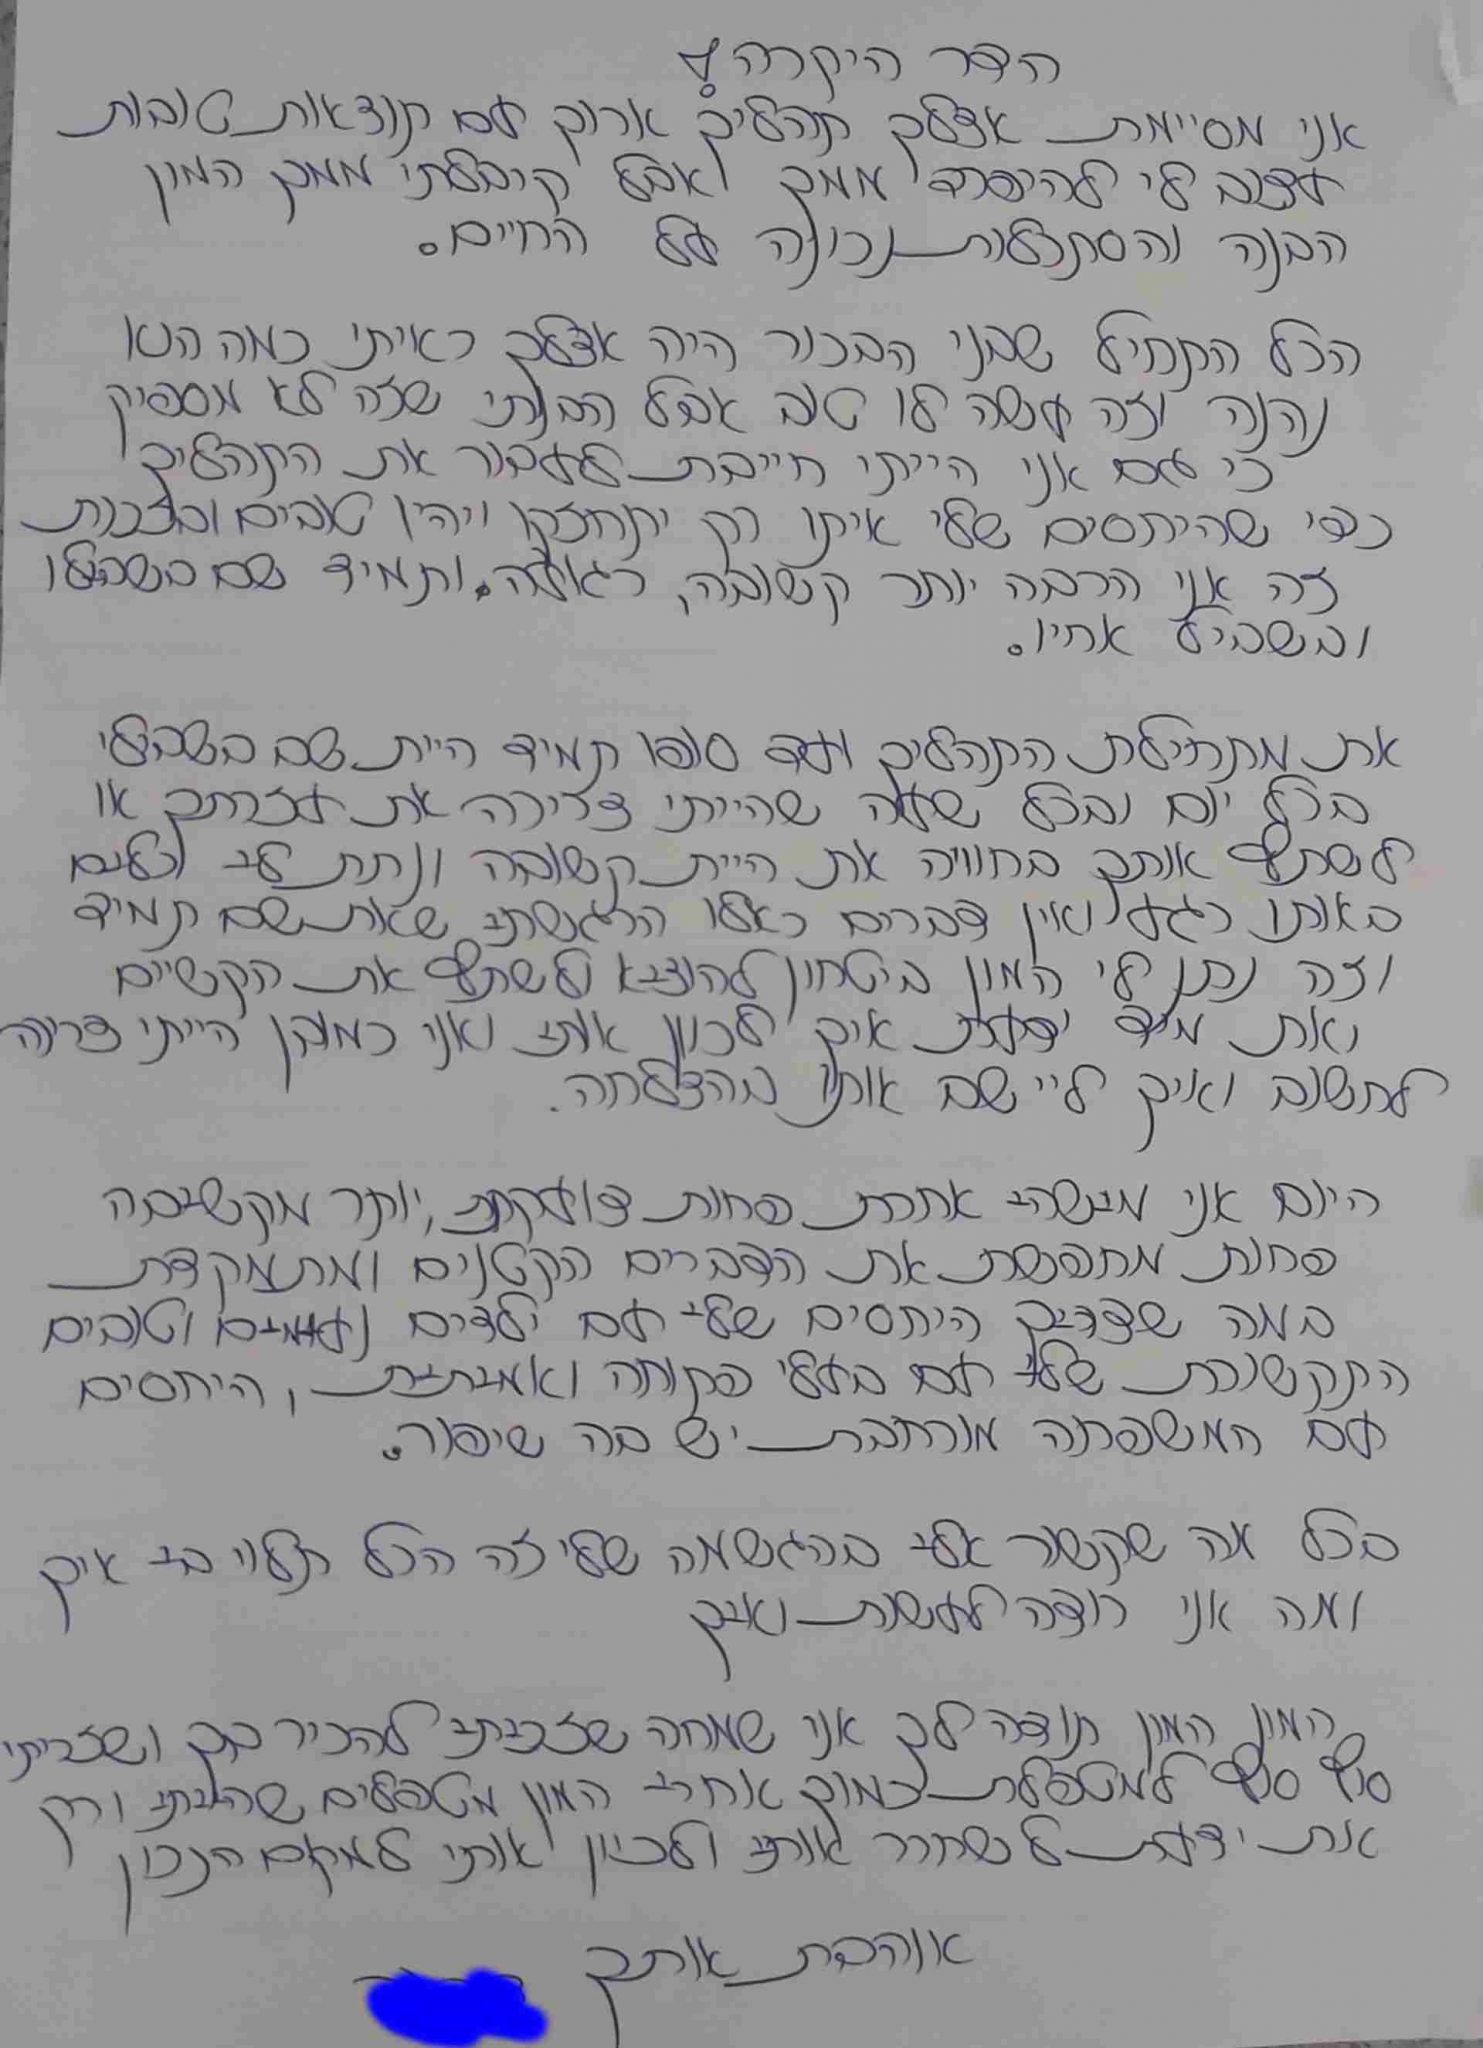 הדר היקרה!
אני מסיימת אצלך תהליך ארוך עם תוצאות טובות
עצוב לי להיפרד ממך אבל קיבלתי ממך המון
הבנה והסתכלות נכונה על החיים.
הכל התחיל שבני הבכור היה אצלך ראיתי כמה הוא
נהנה וזה עשה לו טוב אבל הבנתי שזה לא מספיק
כי גם אני הייתי חייבת לעבור את התהליך
כדי שהיחסים שלי איתו רק יתחזקו ויהיו טובים ובזכות
זה אני הרבה יותר קשובה, רגועה. ותמיד שם בשבילו
ובשביל אחיו.
את מתחילת התהליך ועד סופו תמיד היית שם בשבילי
בכל יום ובכל שעה שהייתי צריכה את עזרתך או
לשתף אותך בחוויה את היית קשובה ונתת לי כלים
באותו רגע ואין דברים כאלו הרגשתי שאת שם תמיד
וזה נתן לי המון ביטחון להוציא ולשתף את הקשיים
ואת מיד ידעת איך לכוון אותי ואני כמובן הייתי צריכה
לחשוב ואיך ליישם אותו בהצלחה.
היום אני מישהי אחרת פחות צועקת, יותר מקשיבה
פחות מחפשת את הדברים הקטנים ומתמקדת
במה שצריך היחסים שלי עם ילדים נעימים וטובים
התקשורת שלי עם בעלי פתוחה ואמיתית, היחסים
עם המשפחה מורחבת יש בה שיפור.
בכל מה שקשור אלי בהגשמה שלי זה הכל תלוי בי איך
ומה אני רוצה לעשות ואיך
המון המון תודה לך אני שמחה שזכיתי להכיר בך ושזכיתי
סוף סוף למטפלת כמוך אחרי המון מטפלים שהייתי ורק
את ידעת לשחרר אותי ולכוון אותי למקום הנכון
אוהבת אותך